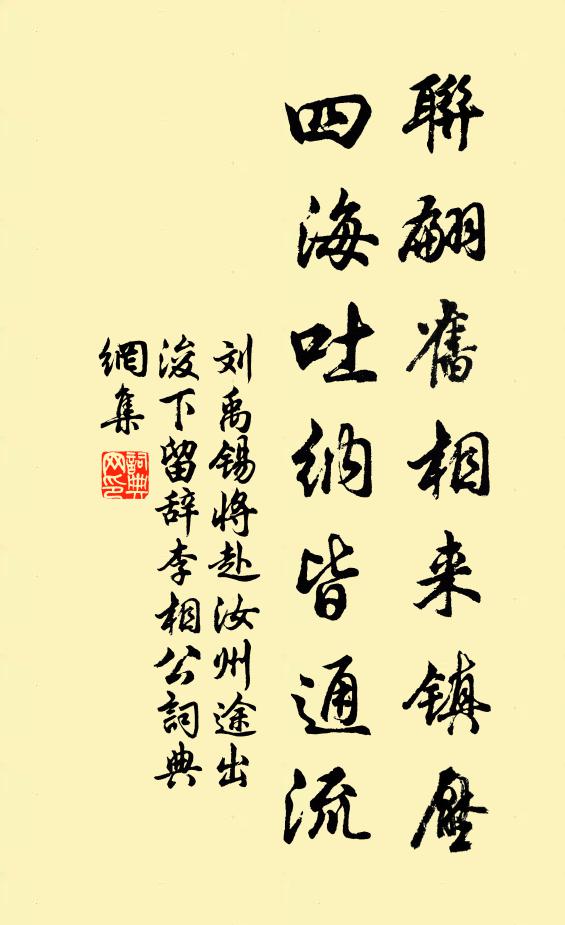 聯翩舊相來鎮壓
四海吐纳皆通流
刘禹锡将赴汝州途出
浚下留辞李相公詞典
網集
詞典
网印